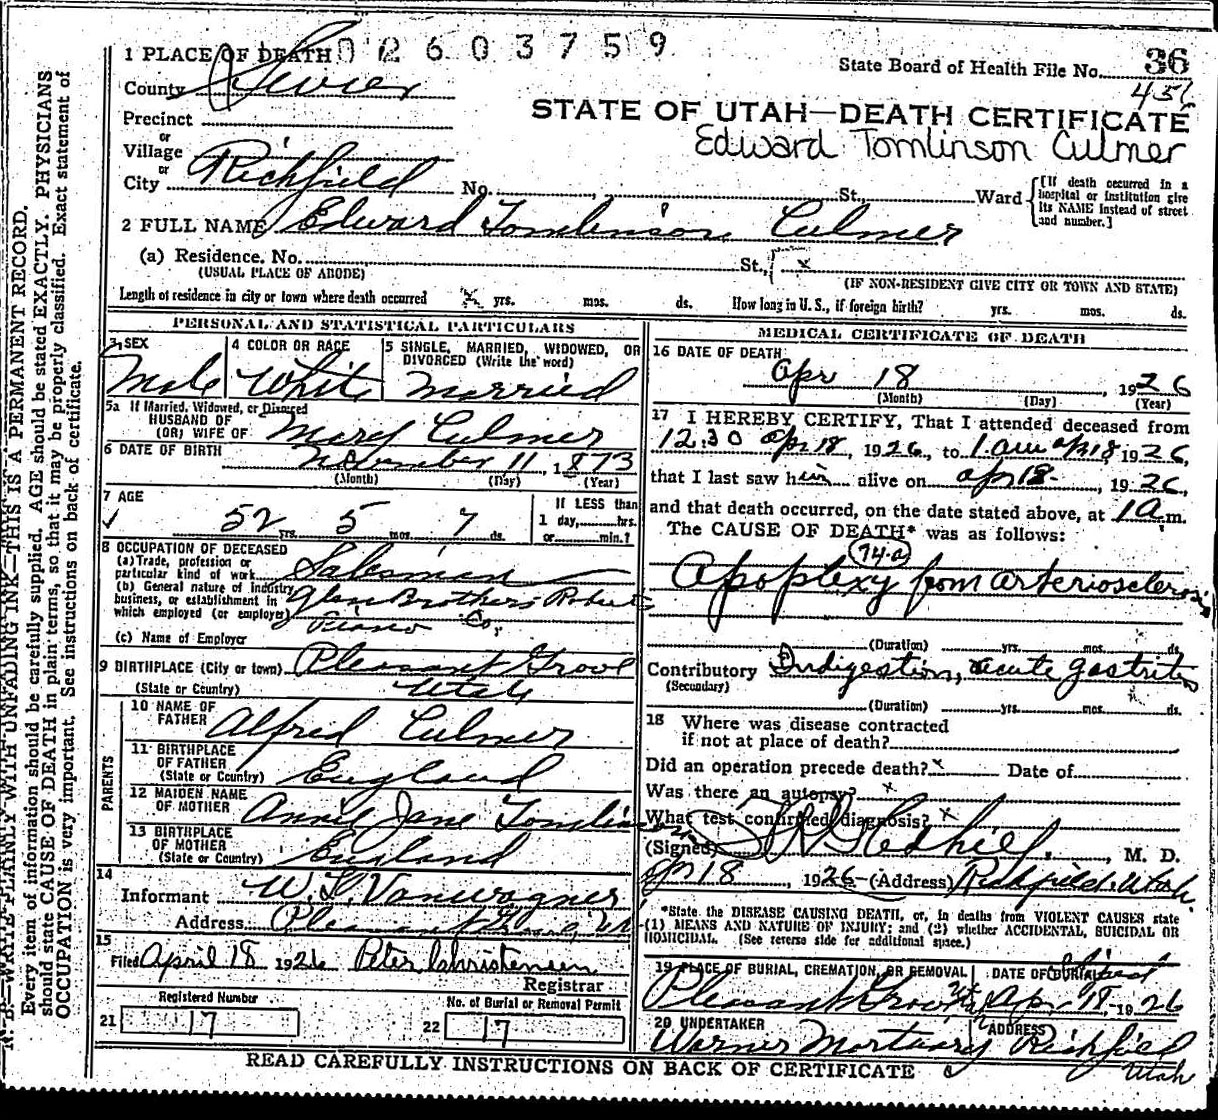 1 PLACE OF DEATH 02603759
State Board of Health File No. 36
County Sevier
456
STATE OF UTAH—DEATH CERTIFICATE
Precinct
Edward Tomlinson Culmer
or
Village
or
City Richfield No. , St. Ward
[If death occurred in a hospital or institution give its NAME instead of street and number.]
2 FULL NAME Edward Tomlinson Culmer
(a) Residence. No. St., x
(USUAL PLACE OF ABODE) (IF NON-RESIDENT GIVE CITY OR TOWN AND STATE)
Length of residence in city or town where death occurred x yrs. mos. ds. How long in U. S., if foreign birth? yrs. mos. ds.
PERSONAL AND STATISTICAL PARTICULARS
3 SEX Male
4 COLOR OR RACE White
5 SINGLE, MARRIED, WIDOWED, OR DIVORCED (Write the word) married
5a If Married, Widowed, or Divorced
HUSBAND OF
(OR) WIFE OF Mary Culmer
6 DATE OF BIRTH November 11, 1873
(Month) (Day) (Year)
7 AGE
52 yrs. 5 mos. 7 ds.
If LESS than
1 day, hrs.
or min.?
8 OCCUPATION OF DECEASED
(a) Trade, profession or
particular kind of work Salesman
(b) General nature of industry
business, or establishment in
which employed (or employer) Glen Brothers Roberts
Piano Co,
(c) Name of Employer
9 BIRTHPLACE (City or town) Pleasant Grove
(State or Country) Utah
PARENTS
10 NAME OF
FATHER Alfred Culmer
11 BIRTHPLACE
OF FATHER
(State or Country) England
12 MAIDEN NAME
OF MOTHER Annie Jane Tomlinson
13 BIRTHPLACE
OF MOTHER
(State or Country) England
14
Informant W. L. Vanwagner
Address Pleasant Grove, Ut
15
Filed April 18 1926 Peter Christensen
Registrar
Registered Number
21 17
No. of Burial or Removal Permit
22 17
MEDICAL CERTIFICATE OF DEATH
16 DATE OF DEATH
Apr 18, 1926
(Month) (Day) (Year)
17 I HEREBY CERTIFY, That I attended deceased from
12:30 apr 18, 1926, to 1 am apr 18 1926,
that I last saw him alive on apr 18, 1926,
and that death occurred, on the date stated above, at 1 a m.
The CAUSE OF DEATH* was as follows:
74-a
Apoplexy from arteriosclerosis
(Duration) yrs. mos. ds.
Contributory Indigestion, acute gastritis
(Secondary)
(Duration) yrs. mos. ds.
18 Where was disease contracted
if not at place of death?
Did an operation precede death? x Date of
Was there an autopsy? x
What test confirmed diagnosis? x
(Signed) , M. D.
Apr 18, 1926 (Address) Richfield, Utah
*State the DISEASE CAUSING DEATH, or, in deaths from VIOLENT CAUSES state
(1) MEANS AND NATURE OF INJURY; and (2) whether ACCIDENTAL, SUICIDAL OR
HOMICIDAL. (See reverse side for additional space.)
19 PLACE OF BURIAL, CREMATION, OR REMOVAL DATE OF BURIAL
Pleasant Grove Utah Apr 18, 1926
20 UNDERTAKER ADDRESS
Warner Mortuary Richfield
Utah
READ CAREFULLY INSTRUCTIONS ON BACK OF CERTIFICATE
N. B.—WRITE PLAINLY WITH UNFADING INK—THIS IS A PERMANENT RECORD.
Every item of information should be carefully supplied. AGE should be stated EXACTLY. PHYSICIANS
should state CAUSE OF DEATH in plain terms, so that it may be properly classified. Exact statement of
OCCUPATION is very important. See instructions on back of certificate.